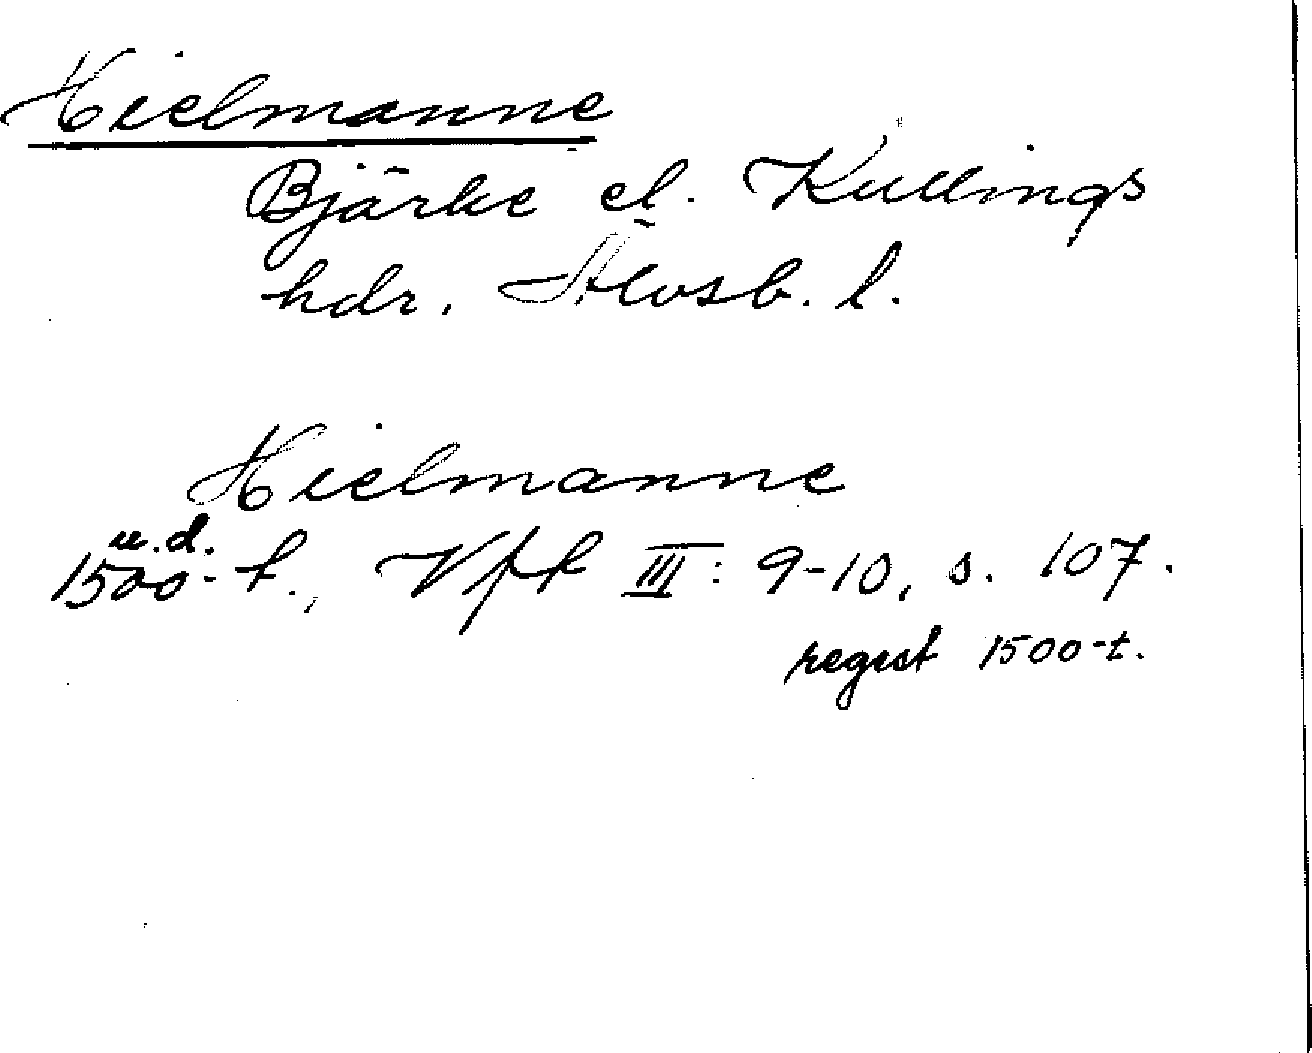 Hielmanne
Bjärke el. Kullings
hdr. Älvsb. l.
Hielmanne
u.d.
1500-t., Vfk III: 9-10, s. 107.
regest 1500-t.